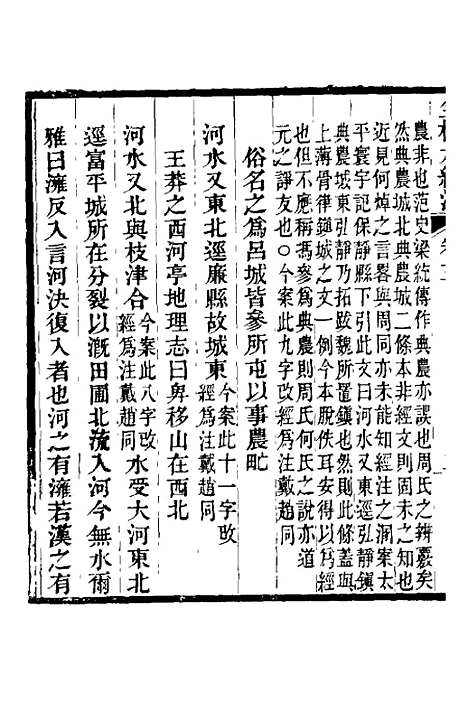 農非也范史梁統傳作典農亦誤也周氏之辨覈矣
然典農城北典農城二條本非經文則固未之知也
近見何焯之言畧與周同亦未能知經注之溷案太
平寰宇記保靜縣下引此文曰河水又東逕弘靜鎮
典農城東弘靜乃拓跋魏所置鎮也然則此條蓋與
上薄骨律鎮城之文一例今本脫佚耳安得以爲經
也但不應稱馮參爲典農則周氏何氏之說亦道
元之諍友也○今案此九字改經爲注戴趙同
俗名之爲呂城皆參所屯以事農甿
河水又東北逕廉縣故城東今案此十一字改經爲注戴趙同
王莽之西河亭地理志曰卑移山在西北
河水又北與枝津合今案此八字改經爲注戴趙同水受大河東北
逕富平城所在分裂以溉田圃北流入河今無水爾
雅曰灉反入言河決復入者也河之有灉若漢之有